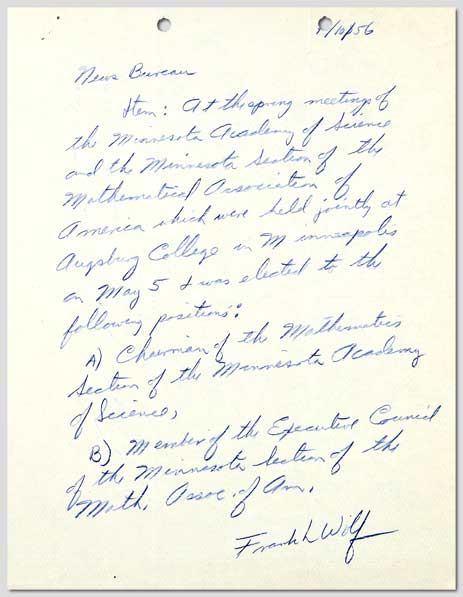 /10/56
News Bureau
Item: At the spring meetings of
the Minnesota Academy of Science
and the Minnesota Section of the
Mathematical Association of
America which were held jointly at
Augsburg College in Minneapolis
on May 5 I was elected to the
following positions:
A) Chairman of the Mathematics
Section of the Minnesota Academy
of Science,
B) Member of the Executive Council
of the Minnesota Section of the
Math. Assoc. of Am.
Frank L Wolf